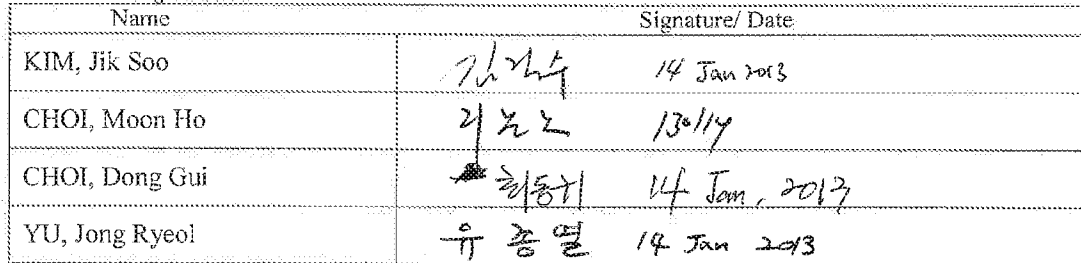 Name Signature/ Date
KIM, Jik Soo 김직수 14 Jan 2013
CHOI, Moon Ho 130114
CHOI, Dong Gui 최동귀 14 Jan, 2013
YU, Jong Ryeol 유종열 14 Jan 2013